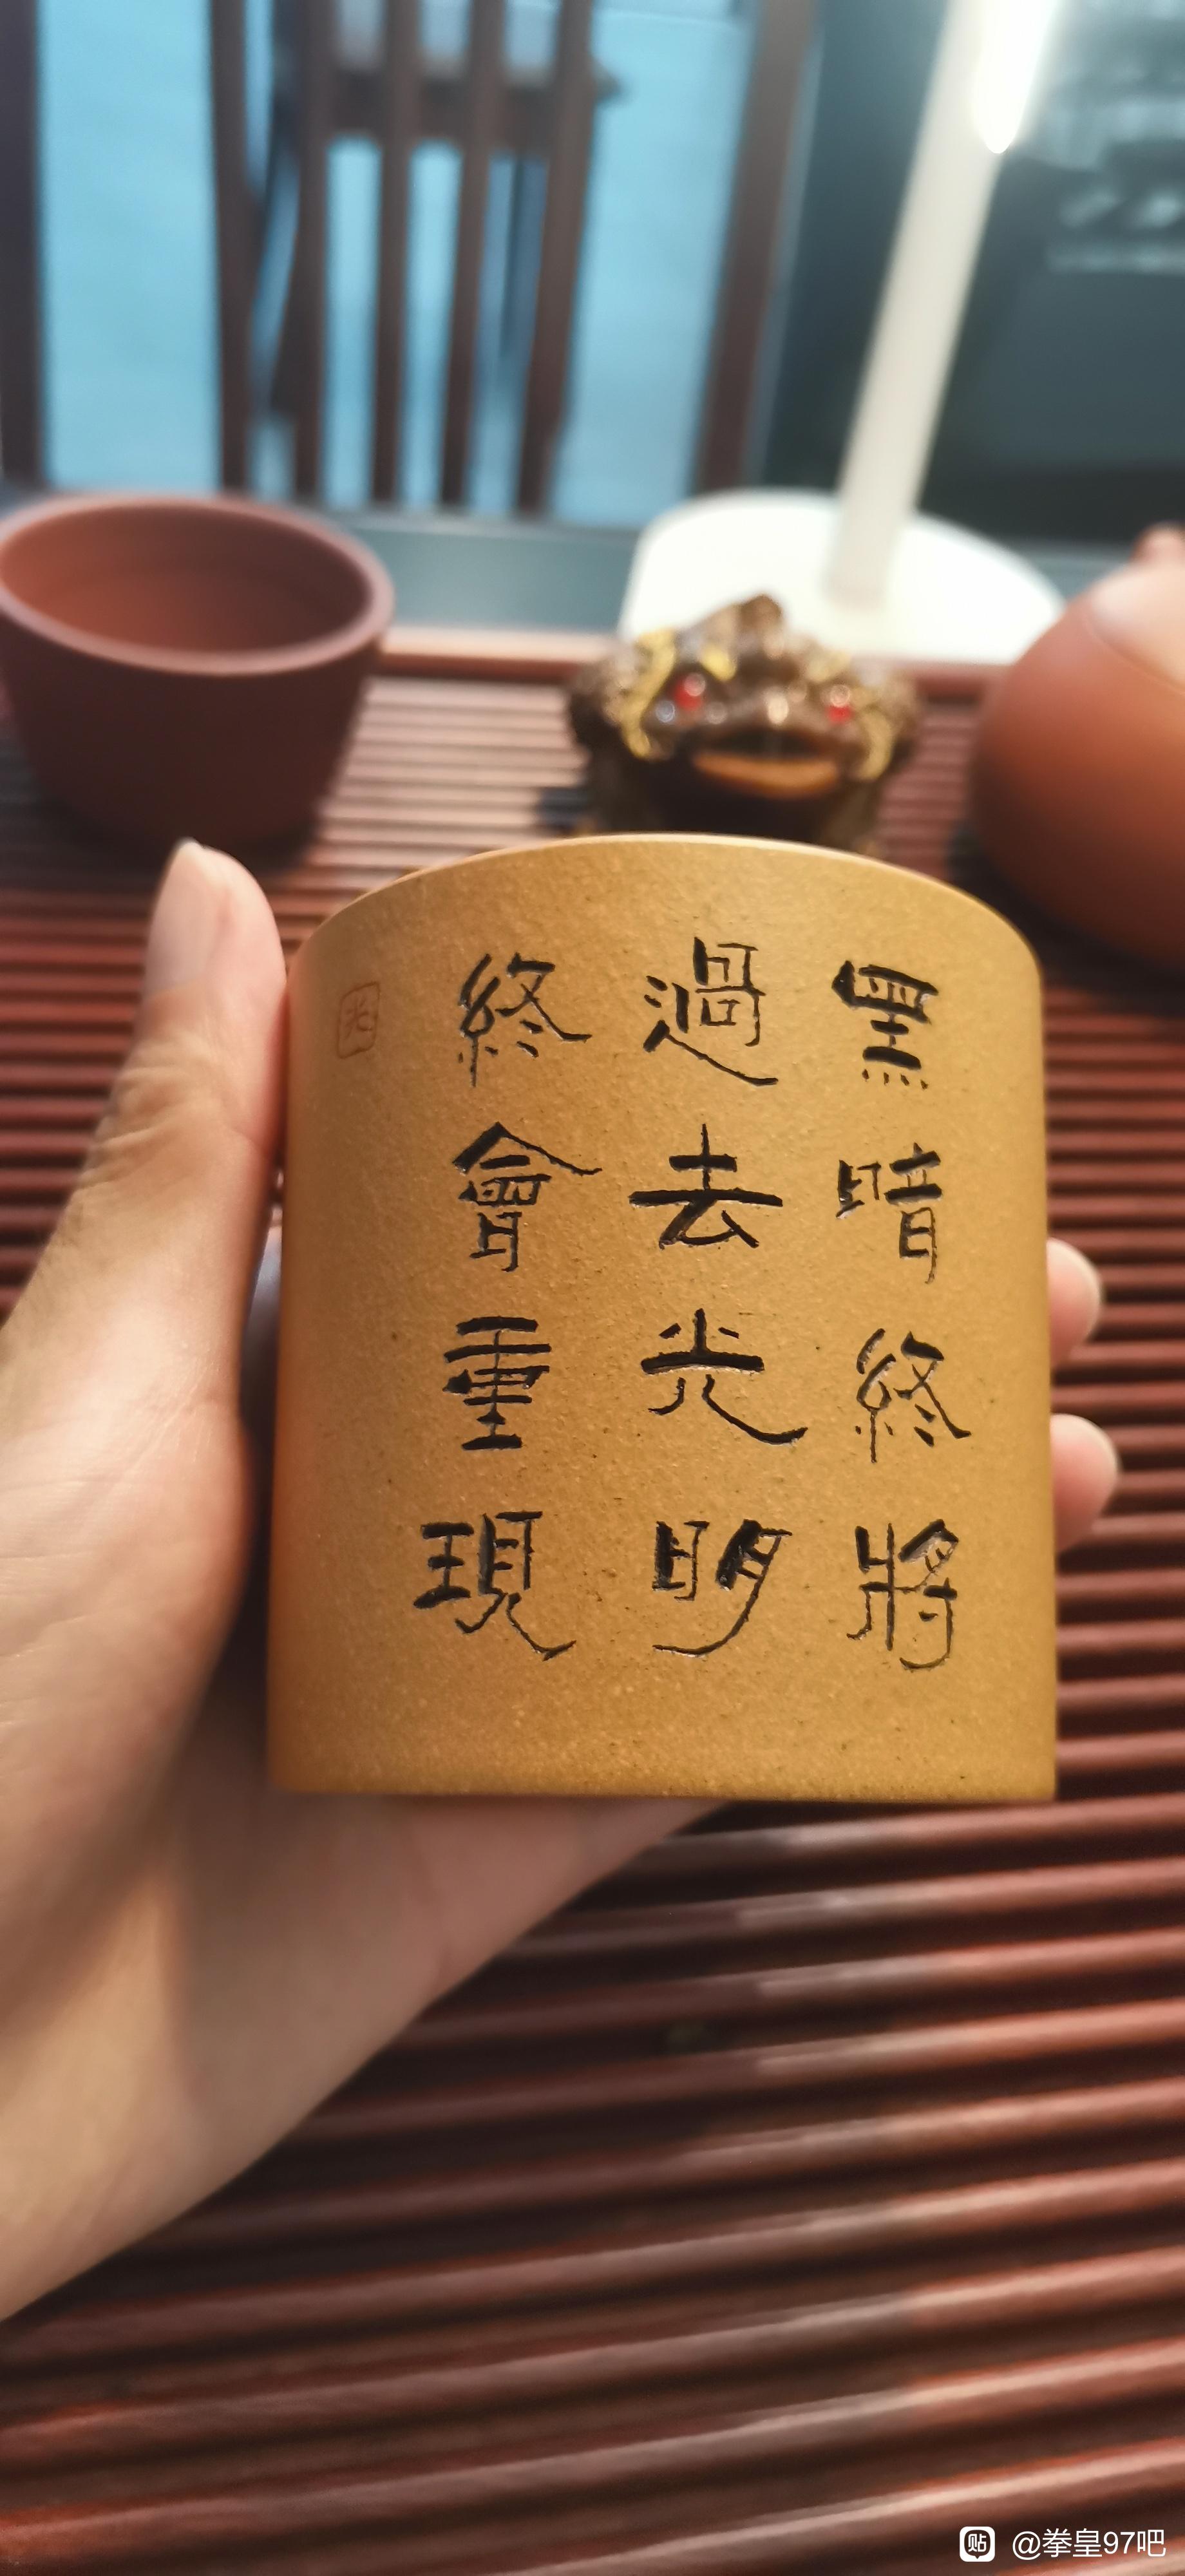 黑暗終將
過去光明
終會重現
光
貼 @拳皇97吧